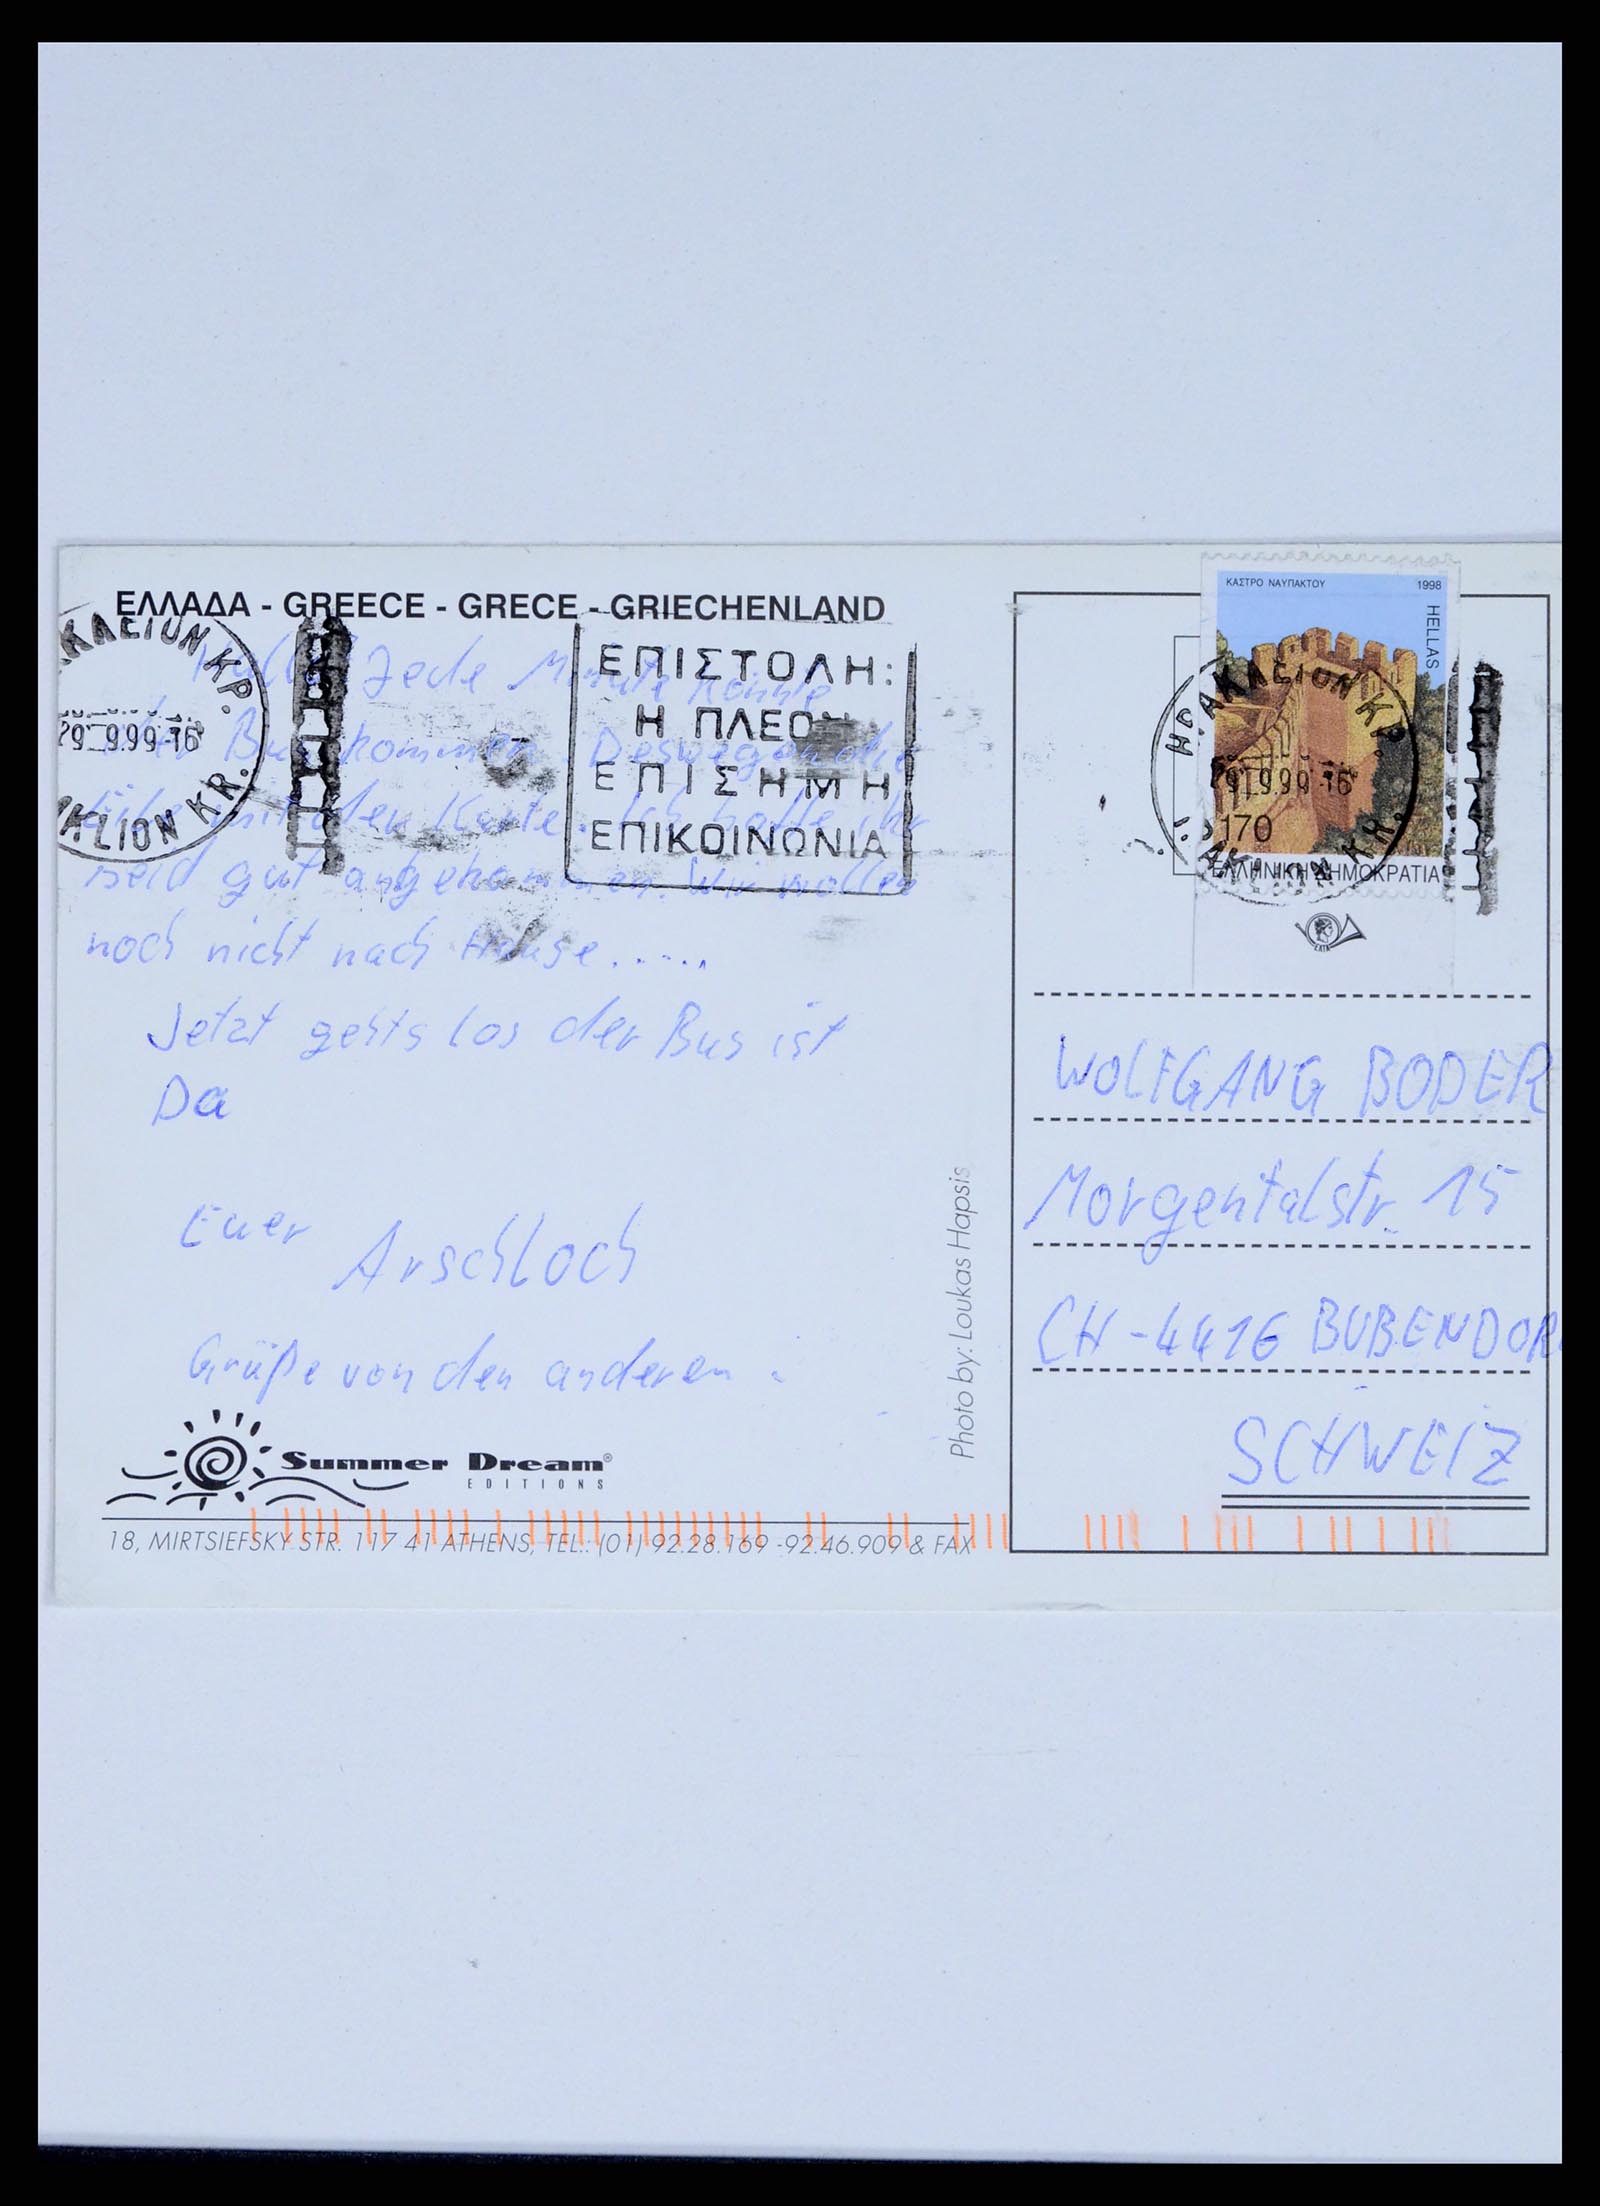 ΕΛΛΑΔΑ - GREECE - GRECE - GRIECHENLAND
Hallo Jede Minute könnte
der Bus kommen. Deswegen die
mit der Karte. Ich hoffe ihr
seid gut angekommen. Wir wollen
noch nicht nach Hause.....
Jetzt gehts los der Bus ist
Da
Euer Arschloch
Grüße von den anderen.
Summer Dream®
EDITIONS
18, MIRTSIEFSKY STR. 117 41 ATHENS, TEL.: (01) 92.28.169 -92.46.909 & FAX
Photo by: Loukas Hapsis
ΑΚΛΕΙΟΝ ΚΡ.
29 9.99-16
AKLION KR.
ΕΠΙΣΤΟΛΗ:
Η ΠΛΕΟΝ
ΕΠΙΣΗΜΗ
ΕΠΙΚΟΙΝΩΝΙΑ
ΚΑΣΤΡΟ ΝΑΥΠΑΚΤΟΥ 1998
HELLAS
170
ΕΛΛΗΝΙΚΗ ΔΗΜΟΚΡΑΤΙΑ
ΗΡΑΚΛΕΙΟΝ ΚΡ.
29.9.99-16
ΕΛΤΑ
WOLFGANG BODER
Morgentalstr. 15
CH-4416 BUBENDOR
SCHWEIZ